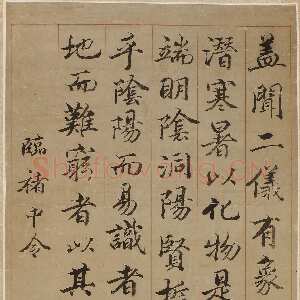 盖聞二儀有象
潛寒暑以化物是
端明陰洞陽賢哲
乎陰陽而易識者
地而難窮者以其
臨褚中令